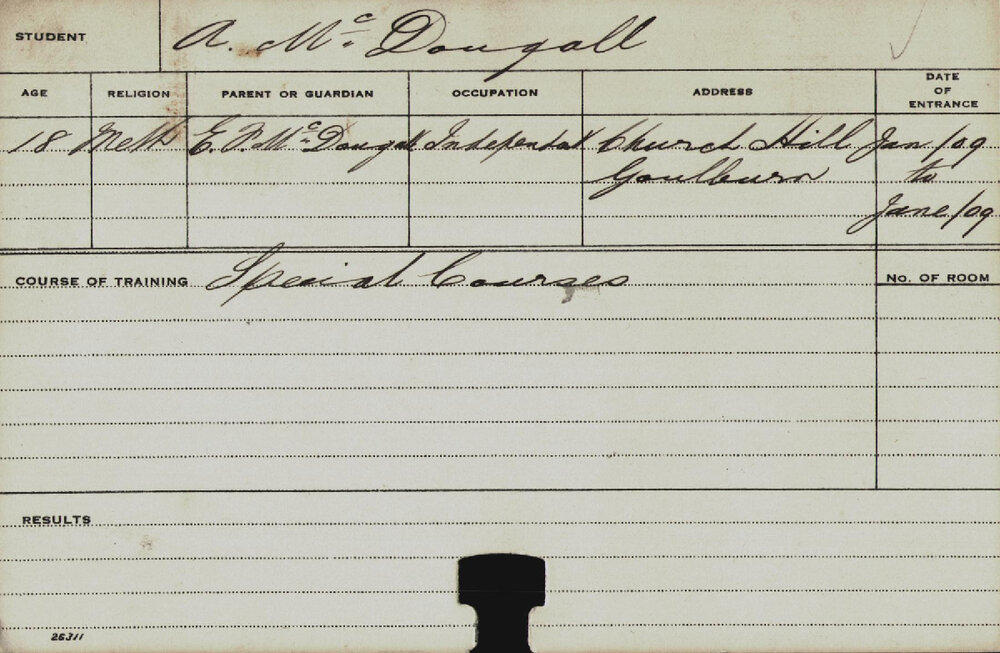 STUDENT A. McDougall
AGE RELIGION PARENT OR GUARDIAN OCCUPATION ADDRESS DATE OF ENTRANCE
18 Meth E. P. McDougall Independent Church Hill Jan/09
Goulburn to
June/09
COURSE OF TRAINING Special Courses No. OF ROOM
RESULTS
26311